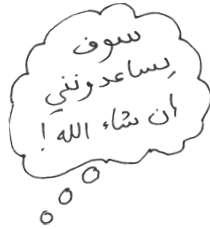 سوف
يساعدونني
ان شاء الله !